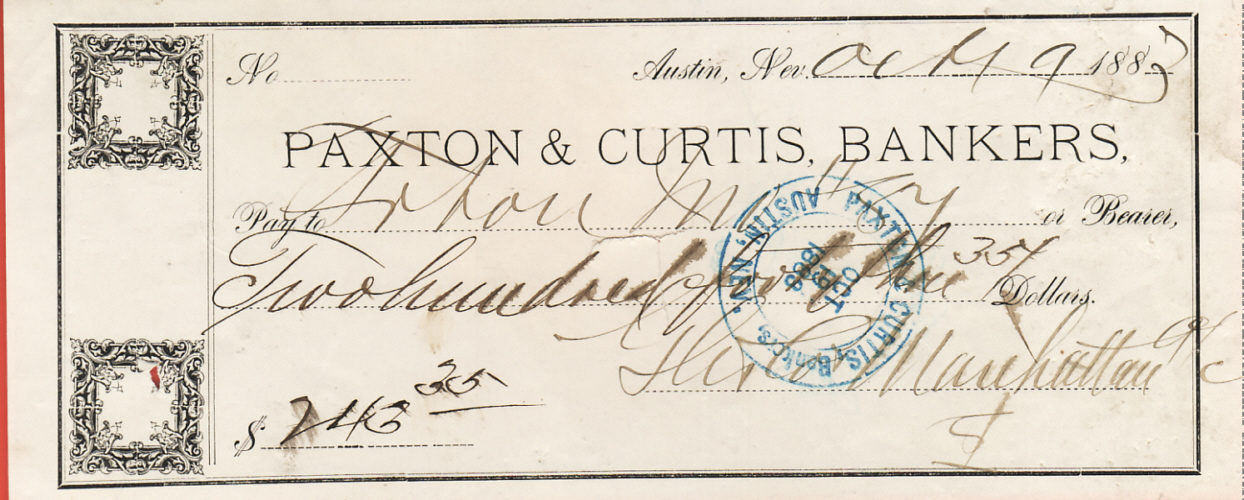 No Austin, Nev. Oct 9 1883
PAXTON & CURTIS, BANKERS,
Pay to or Bearer,
Two hundred forty three 35/ Dollars.
Manhattan
$ 243 35
PAXTON & CURTIS, Bankers, AUSTIN, NEV.
OCT 9 1883